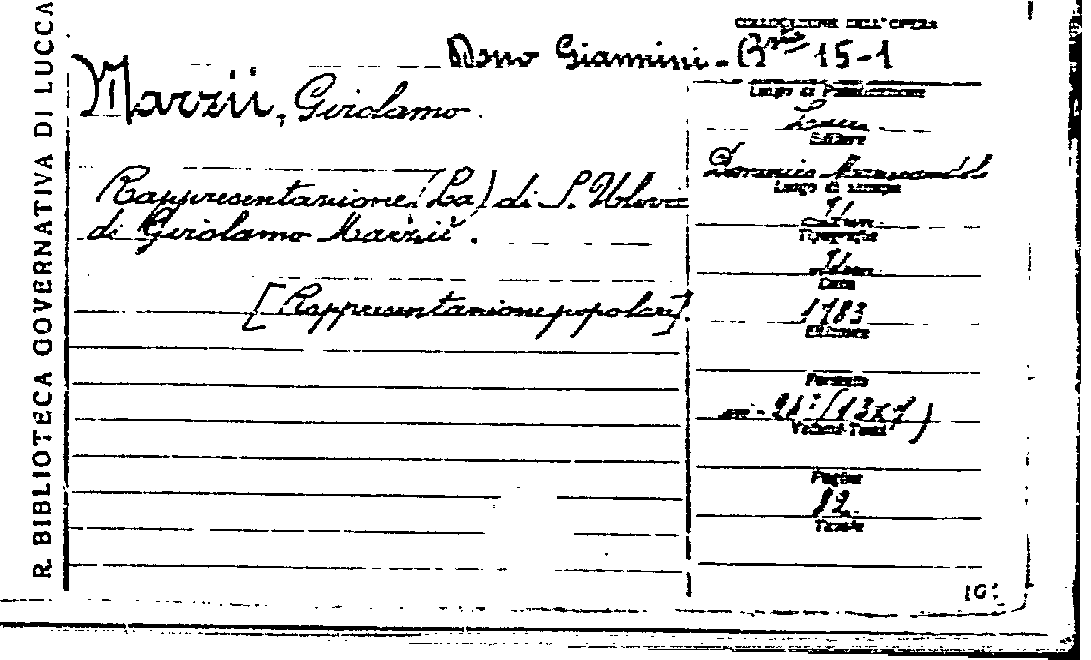 R. BIBLIOTECA GOVERNATIVA DI LUCCA
COLLOCAZIONE DELL'OPERA
Dono Giannini - 15-1
Marzii, Girolamo.
Rappresentazione (La) di S.
di Girolamo Marzii.
[Rappresentazione popolare].
Luogo di Pubblicazione
Lucca
Editore
Domenico Marescandoli
Luogo di stampa
Tipografo
Data
1783
Edizione
Formato
(13x7)
Volumi-Tomi
Pagine
82
Tavole